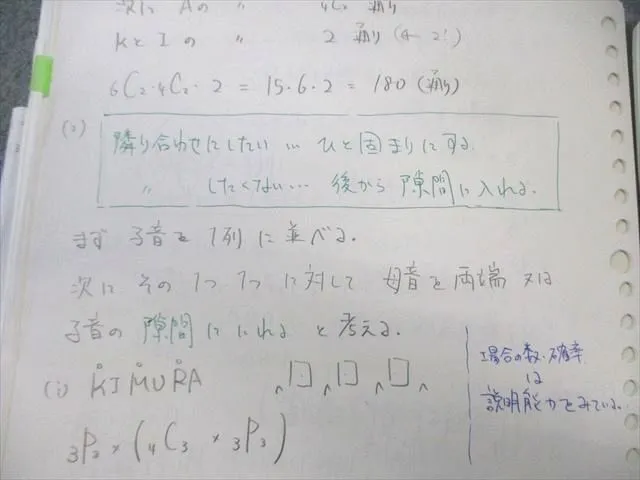 次に Aの 〃 4C2 通り
KとIの 〃 2 通り (← 2!)
6C2・4C2・2 = 15・6・2 = 180 (通り)
(2)
隣り合わせにしたい … ひと固まりにする.
〃 したくない … 後から 隙間に入れる.
まず 子音を 1列に並べる.
次に その 1つ 1つ に対して 母音を両端 又は
子音の 隙間に いれる と考える.
(i) KIMURA
3P3 × (4C3 × 3P3)
場合の数・確率
は
説明能力をみている.